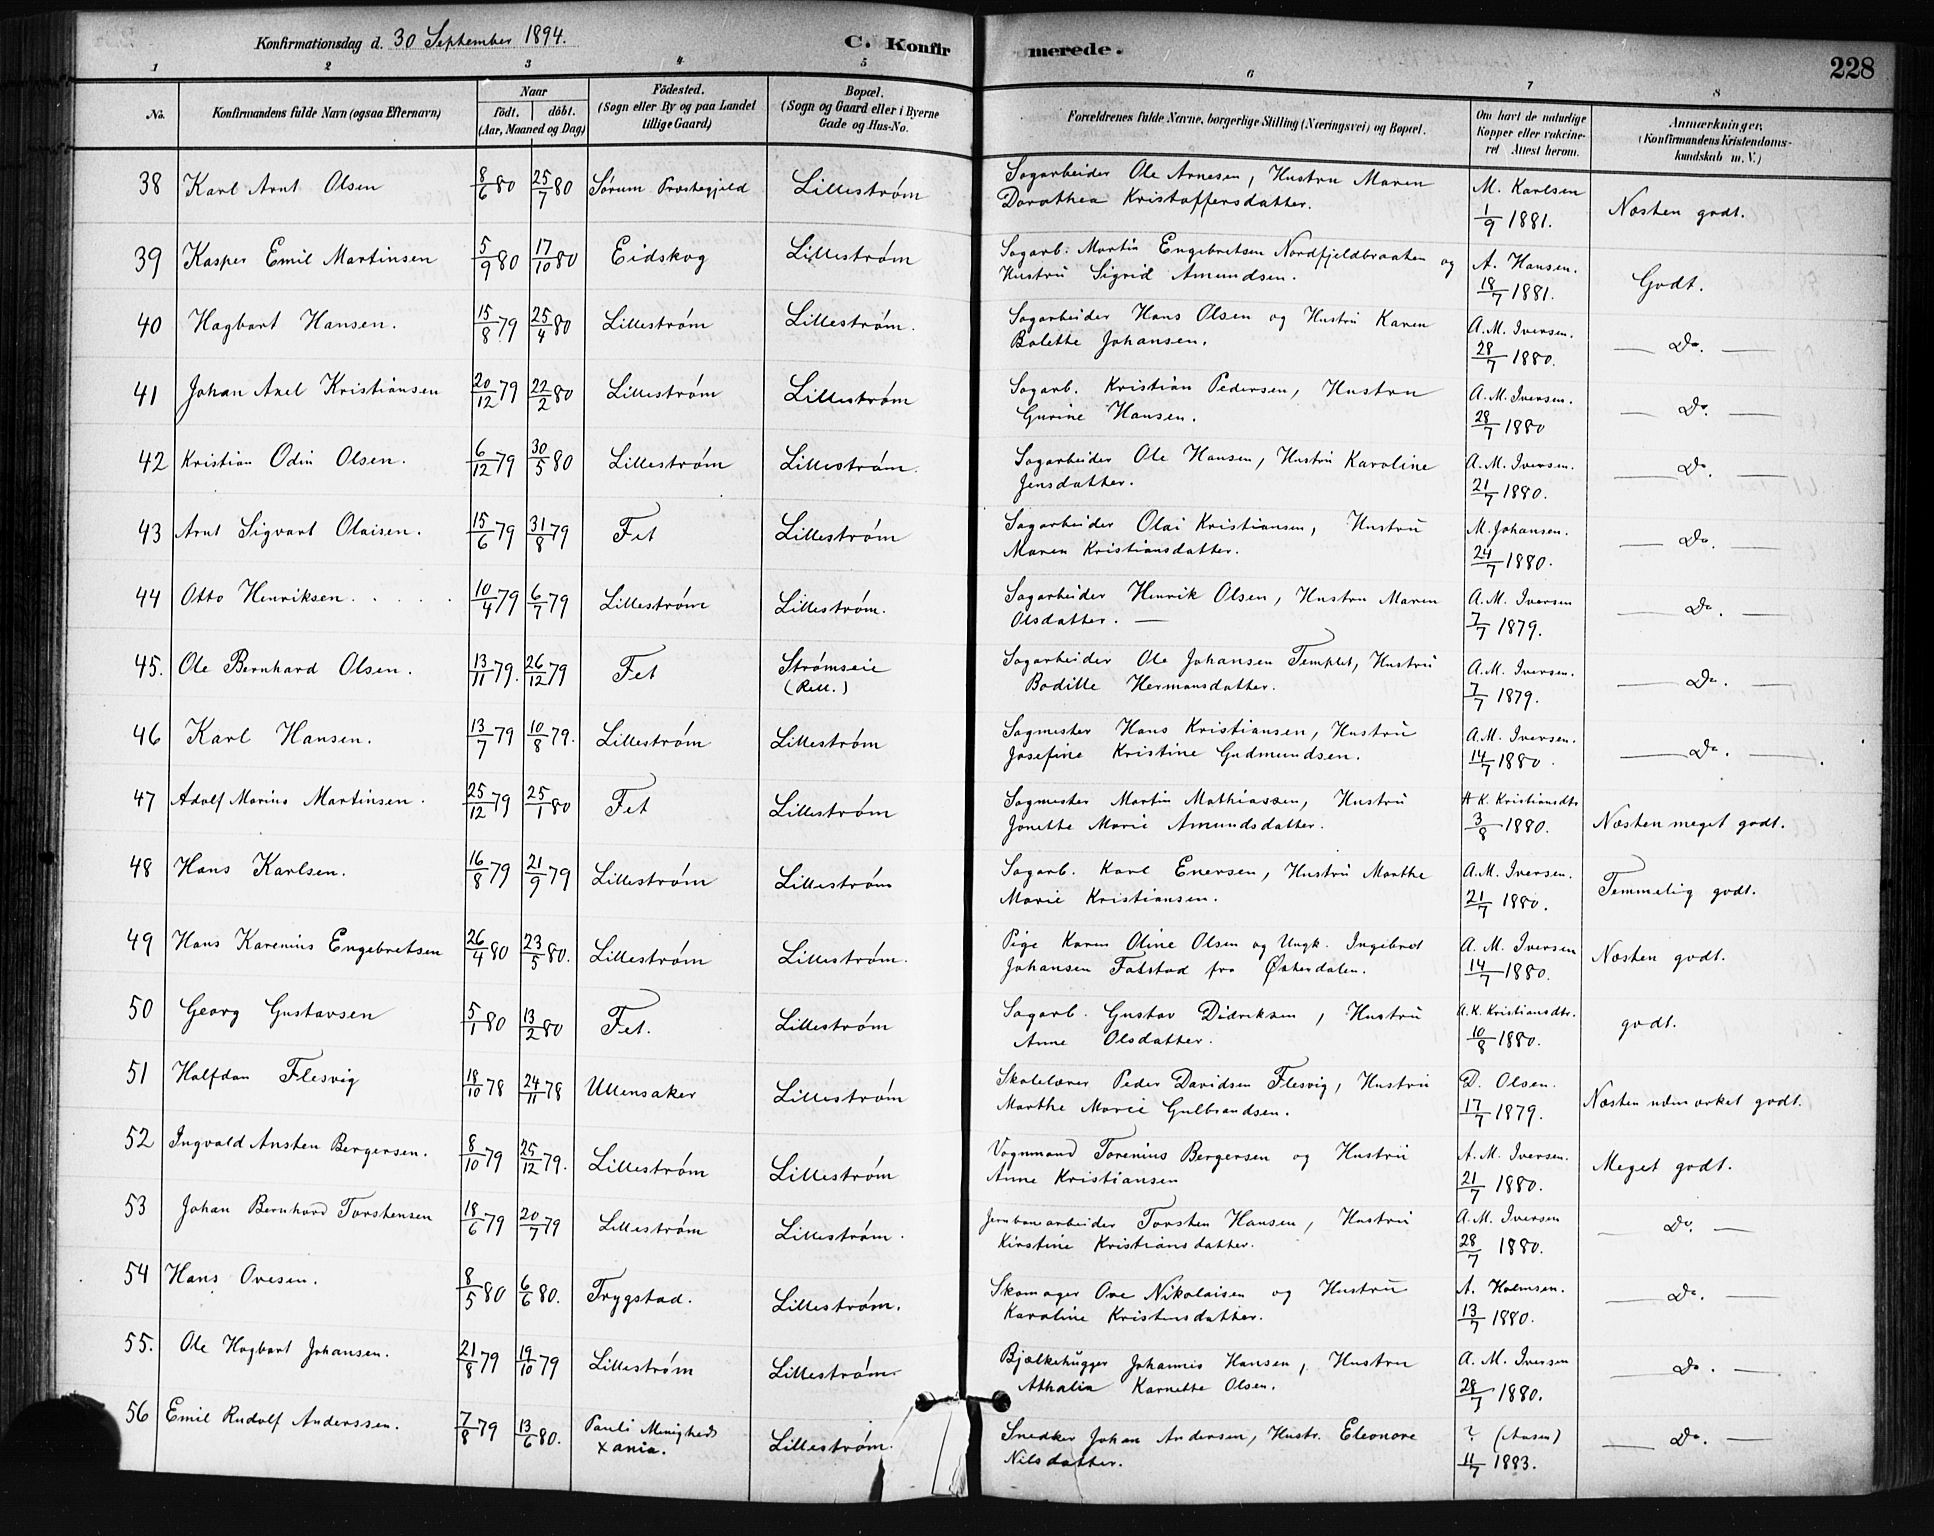 Konfirmationsdag d. 30 September 1894. C. Konfirmerede. 228
1 2 3 4 5 6 7 8
No. | Konfirmandens fulde Navn (ogsaa Efternavn) | Naar födt. döbt. (Aar, Maaned og Dag) | Födested. (Sogn eller By og paa Landet tillige Gaard) | Bopæl. (Sogn og Gaard eller i Byerne Gade og Hus-No. | Forældrenes fulde Navne, borgerlige Stilling (Næringsvei) og Bopæl. | Om havt de naturlige Kopper eller vakcineret. Attest herom. | Anmærkninger, (Konfirmandens Kristendomskundskab m. V.)
38 Karl Arnt Olsen 8/6 80 25/7 80 Sørum Præstegjeld Lillestrøm Sagarbeider Ole Arnesen, Hustru Maren Dorothea Kristoffersdatter. M. Karlsen 1/9 1881. Næsten godt.
39 Kasper Emil Martinsen 5/9 80 17/10 80 Eidskog Lillestrøm Sagarb. Martin Engebretsen Nordfjeldbraaten og Hustru Sigrid Amundsen. A. Hansen. 18/7 1881. Godt.
40 Hagbart Hansen. 15/8 79 25/4 80 Lillestrøm Lillestrøm. Sagarbeider Hans Olsen og Hustru Karen Bolette Johansen. A. M. Iversen. 28/7 1880. — Do. —
41 Johan Axel Kristiansen 20/12 79 22/2 80 Lillestrøm Lillestrøm Sagarb. Kristian Pedersen, Hustru Gurine Hansen. A. M. Iversen. 28/7 1880 — Do. —
42 Kristian Odin Olsen. 6/12 79 30/5 80 Lillestrøm Lillestrøm. Sagarbeider Ole Hansen, Hustru Karoline Jensdatter. A. M. Iversen. 21/7 1880. — Do. —
43 Arnt Sigvart Olaisen. 15/6 79 31/8 79 Fet Lillestrøm Sagarbeider Olai Kristiansen, Hustru Maren Kristiansdatter. M. Johansen. 24/7 1880. — Do. —
44 Otto Henriksen. 10/4 79 6/7 79 Lillestrøm Lillestrøm. Sagarbeider Henrik Olsen, Hustru Maren Olsdatter. — A. M. Iversen 7/7 1879. — Do. —
45. Ole Bernhard Olsen. 13/11 79. 26/12 79 Fet Strømseie (Rell.) Sagarbeider Ole Johansen Templet, Hustru Bodille Hermansdatter. A. M. Iversen. 7/7 1879. — Do. —
46 Karl Hansen. 13/7 79 10/8 79. Lillestrøm Lillestrøm Sagmester Hans Kristiansen, Hustru Josefine Kristine Gudmundsen. A. M. Iversen. 14/7 1880. — Do. —
47 Adolf Marius Martinsen. 25/12 79 25/1 80 Fet Lillestrøm Sagmester Martin Mathiassen, Hustru Jonette Marie Amundsdatter. A K. Kristiansdtr 3/8 1880. Næsten meget godt.
48 Hans Karlsen. 16/8 79 21/9 79 Lillestrøm Lillestrøm Sagarb. Karl Enersen, Hustru Marthe Marie Kristiansen. A. M. Iversen. 21/7 1880. Temmelig godt.
49 Hans Karenius Engebretsen 26/4 80 23/5 80. Lillestrøm Lillestrøm. Pige Karen Oline Olsen og Ungk. Ingebret Johansen Fatstad fra Østerdalen. A. M. Iversen 14/7 1880. Næsten godt.
50 Georg Gustavsen 5/1 80 13/2 80 Fet. Lillestrøm Sagarb. Gustav Didriksen, Hustru Anne Olsdatter. A. K. Kristiansdtr. 10/8 1880. godt.
51 Halfdan Flesvig 18/10 78 24/11 78 Ullensaker Lillestrøm Skolelærer Peder Davidsen Flesvig, Hustru Marthe Marie Gulbrandsen. D. Olsen. 17/7 1879. Næsten udmærket godt.
52 Ingvald Ansten Bergersen. 8/10 79 25/12 79. Lillestrøm Lillestrøm Vognmand Torenius Bergersen og Hustru Anne Kristiansen A. M. Iversen. 21/7 1880. Meget godt.
53 Johan Bernhard Torstensen 18/6 79 20/7 79 Lillestrøm Lillestrøm. Jernbanearbeider Torsten Hansen, Hustru Kirstine Kristiansdatter. A. M. Iversen 28/7 1880. Do. —
54 Hans Ovesen. 8/5 80 6/6 80. Trygstad. Lillestrøm. Skomager Ove Nikolaisen og Hustru Karoline Kristensdatter. A. Holmsen. 13/7 1880. — Do. —
55. Ole Hagbart Johansen. 21/8 79 19/10 79 Lillestrøm Lillestrøm. Bjælkehugger Johannes Hansen, Hustru Athalia Karnette Olsen. A. M. Iversen 28/7 1880. — Do. —
56 Emil Rudolf Anderssen. 7/8 79 13/6 80. Pauli Menigheds Xania. Lillestrøm. Snedker Johan Andersen, Hustr. Eleonore Nilsdatter. ? (Aasen) 11/7 1883. — Do. —